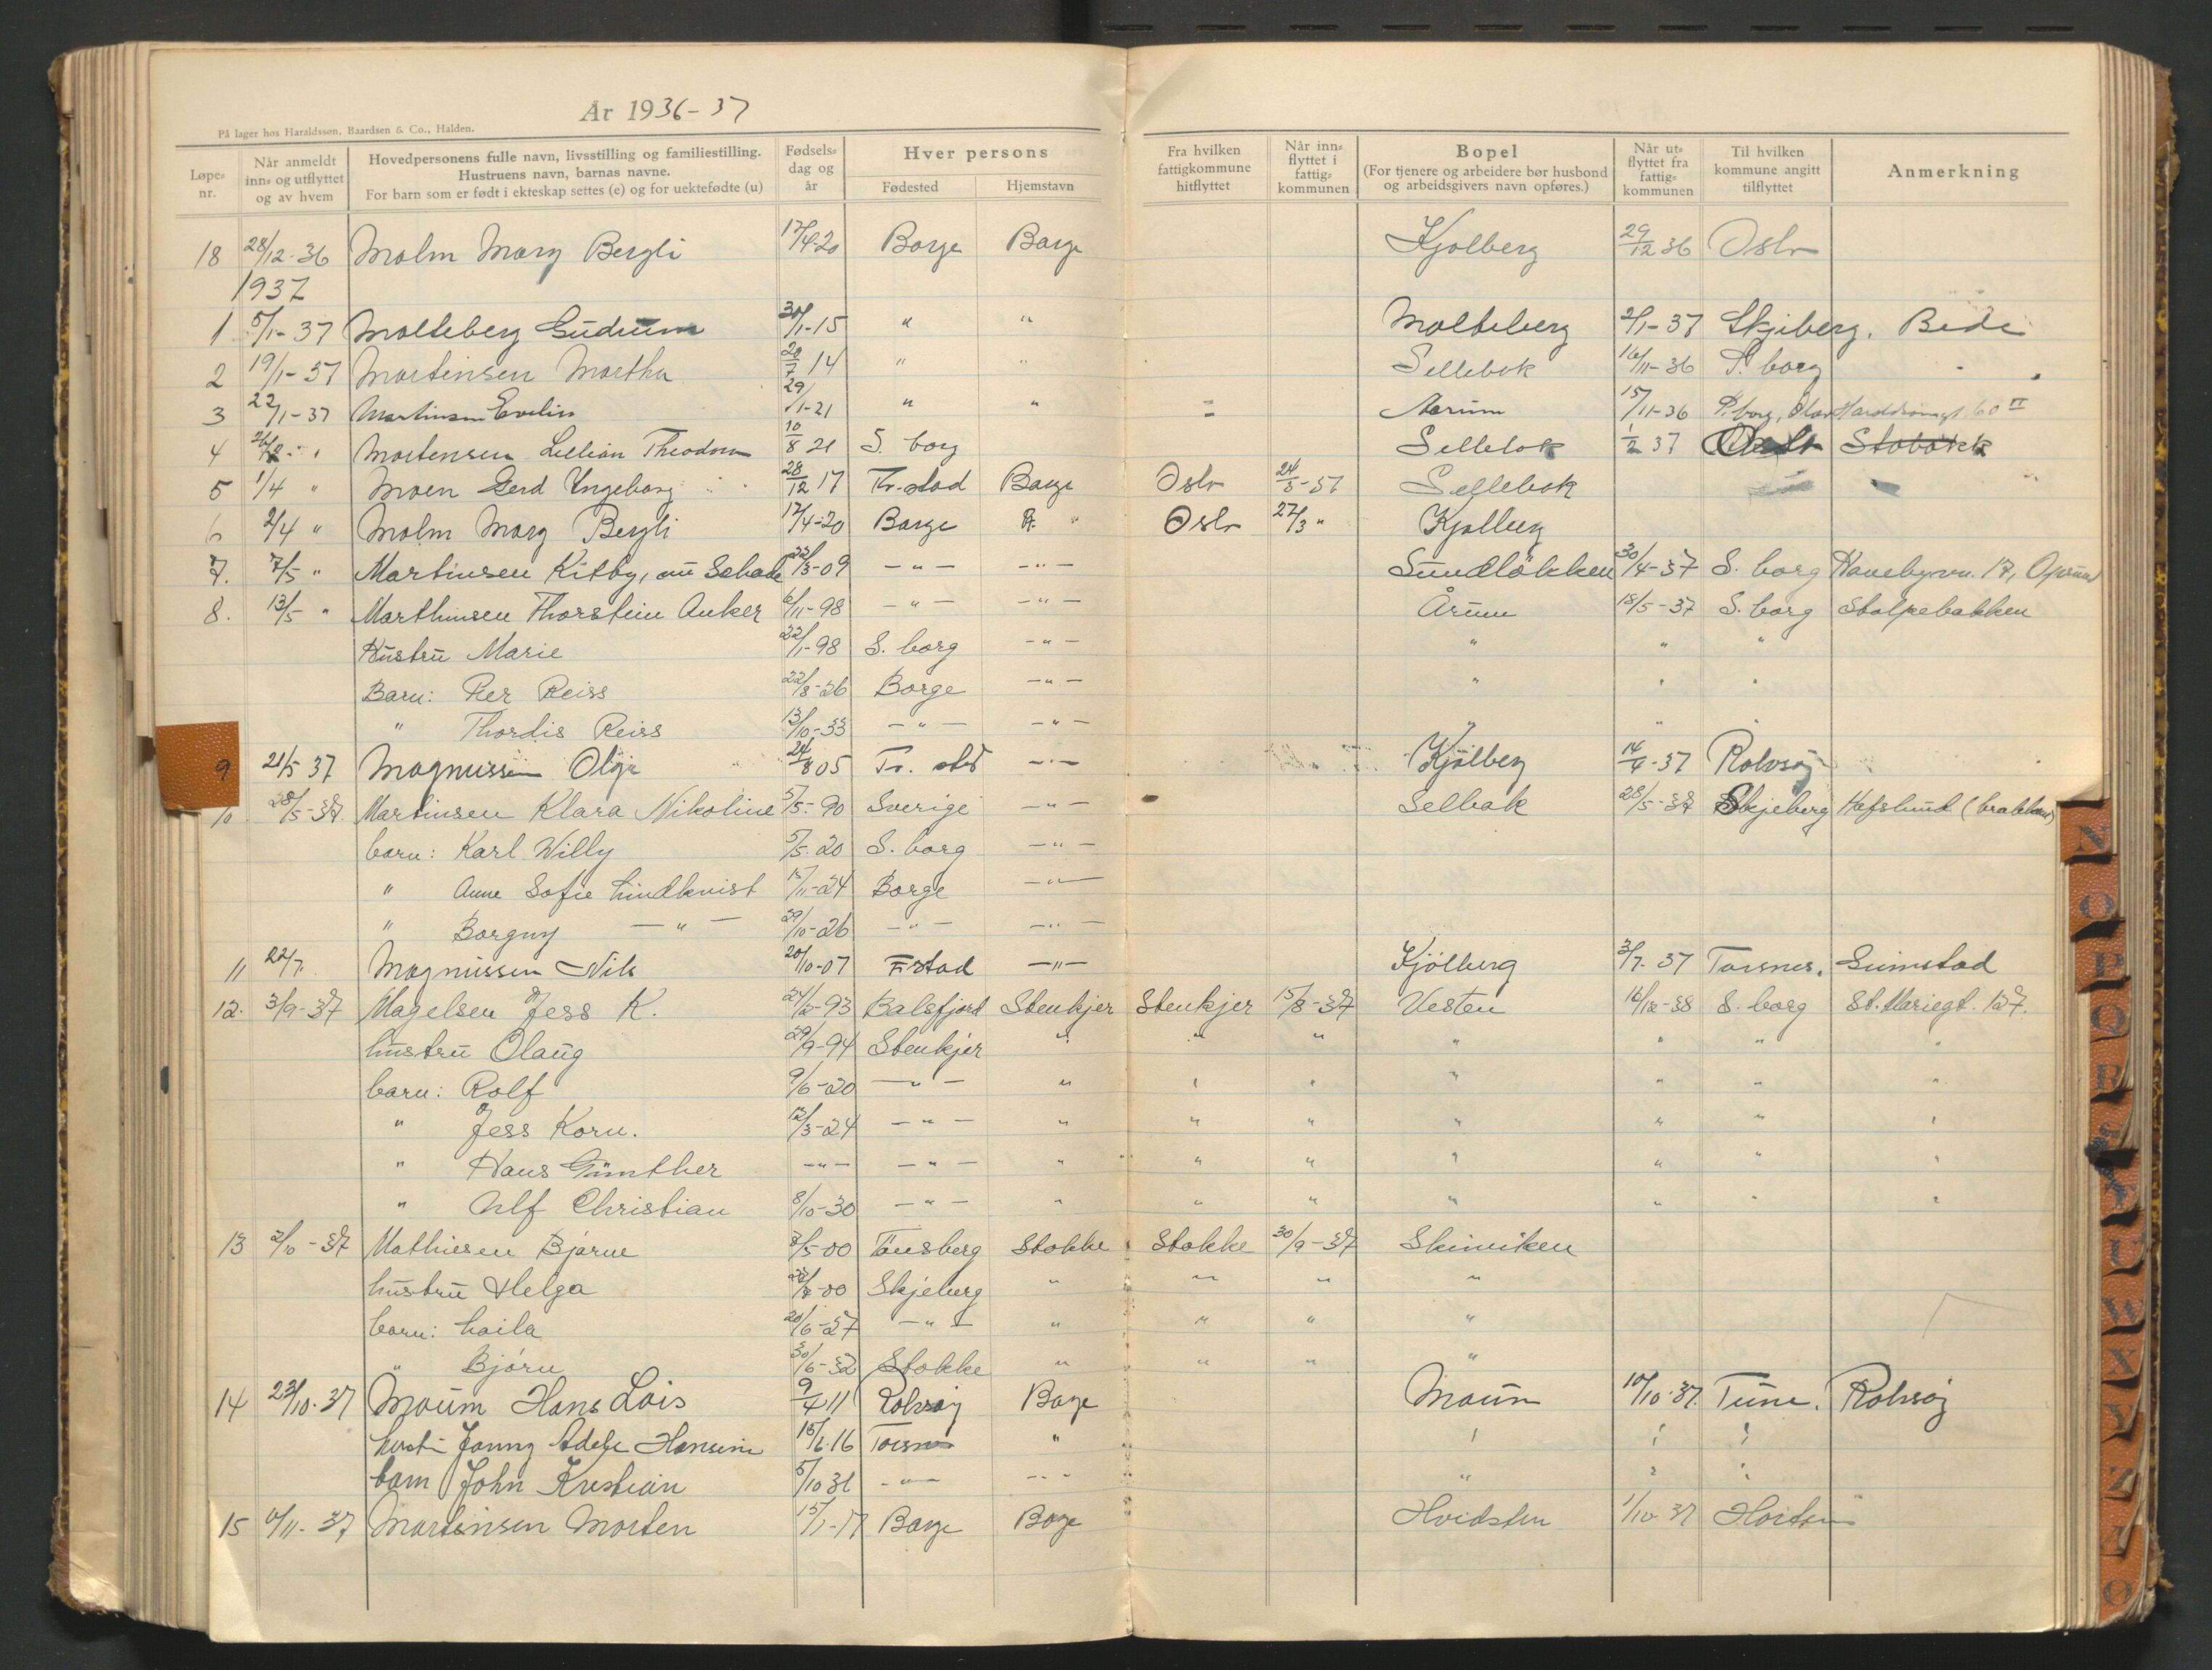 År 1936-37
På lager hos Haraldssøn, Baardsen & Co., Halden.
Løpe-nr. Når anmeldt inn- og utflyttet og av hvem Hovedpersonens fulle navn, livsstilling og familiestilling. Hustruens navn, barnas navne. For barn som er født i ekteskap settes (e) og for uektefødte (u) Fødsels-dag og år Hver persons Fødested Hjemstavn Fra hvilken fattigkommune hitflyttet Når inn-flyttet i fattig-kommunen Bopel (For tjenere og arbeidere bør husbond og arbeidsgivers navn opføres.) Når ut-flyttet fra fattig-kommunen Til hvilken kommune angitt tilflyttet Anmerkning
18 28/12-36 Malm Mary Bergli 17/4-20 Borge Borge Kjølberg 29/12 36 Oslo
1937
1 5/1-37 Molteberg Gudrun 30/1-15 " " Molteberg 2/1-37 Skjeberg.
2 19/1-37 Martinsen Martha 20/7 14 " " Sellebok 16/11-36 S. borg
3 22/1-37 Martinsen Evelin 29/1-21 " " Aarum 15/11-36 60 II
4 Mortensen Lillian Theodora 10/8 21 S. borg Sellebok 1/2 37
5 1/4 " Moen Gerd Ingeborg 28/12 17 Fr.stad Borge Oslo 24/3-37 Sellebok
6 2/4 " Malm Mary Bergli 17/4-20 Borge " Oslo 27/3 " Kjølberg
7. 7/5 " Martinsen Kitby, 22/3-09 -"- -"- Sundløkken 30/4-37 S. borg 17,
8. 13/5 " Marthinsen Thorstein Anker 6/11-98 -"- -"- Årum 18/5-37 S. borg Stolpebakken
Hustru Marie 22/1-98 S. borg -"- " " "
Barn: Per Reiss 22/8-26 Borge -"- " " "
" Thordis Reiss 13/10-33 -"- -"- " " "
9 21/5 37 Magnussen Olga 24/8 05 Fr. stad -"- Kjølberg 14/4-37 Rolvsøy
10 28/5-37. Martinsen Klara Nikoline 5/5-90 Sverige -"- Selbak 28/5-37 Skjeberg Hafslund (brakken)
barn: Karl Willy 5/5-20 S. borg -"-
" Anne Sofie Lindkvist 15/11-24 Borge -"-
" Borgny -"- 29/10-26 -"- -"-
11 22/7. Magnussen Nils 20/10-07 F.stad -"- Kjølberg 3/7-37 Torsnes. Grimstad
12. 3/9-37 Magelsen Jess K. 24/2-93 Balsfjord Stenkjer Stenkjer 15/8-37 Vesten 16/12-38 S. borg St. Mariegt. 127.
hustru Olaug 29/9-94 Stenkjer " " " " " " "
barn: Rolf 9/6-20 -"- " " " " " " "
" Jess Korn. 12/3-24 -"- " " " " " " "
" Hans Günther -"- -"- " " " " " " "
" Ulf Christian 8/10-30 -"- " " " " " " "
13 2/10-37 Mathiesen Bjarne 3/5-00 Tønsberg Stokke Stokke 30/9-37 Skinviken
hustru Helga -00 Skjeberg " " " "
barn: Laila 20/6-27 -"- " " " "
" Bjørn 30/6-32 Stokke " " " "
14 23/10-37 Moum Hans Lois 9/4 11 Rolvsøy Borge Moum 10/10-37. Tune. Rolvsøy
hust. Jenny Adele Hansine 15/6-16 Torsnes " " " "
barn John Kristian 5/10 31 -"- -"- " " "
15 6/11-37 Martinsen Morten 15/1-17 Borge Borge Hvidsten 1/10-37 Horten
N
O
P
Q
R
U
W
X
Y
Z
Ø